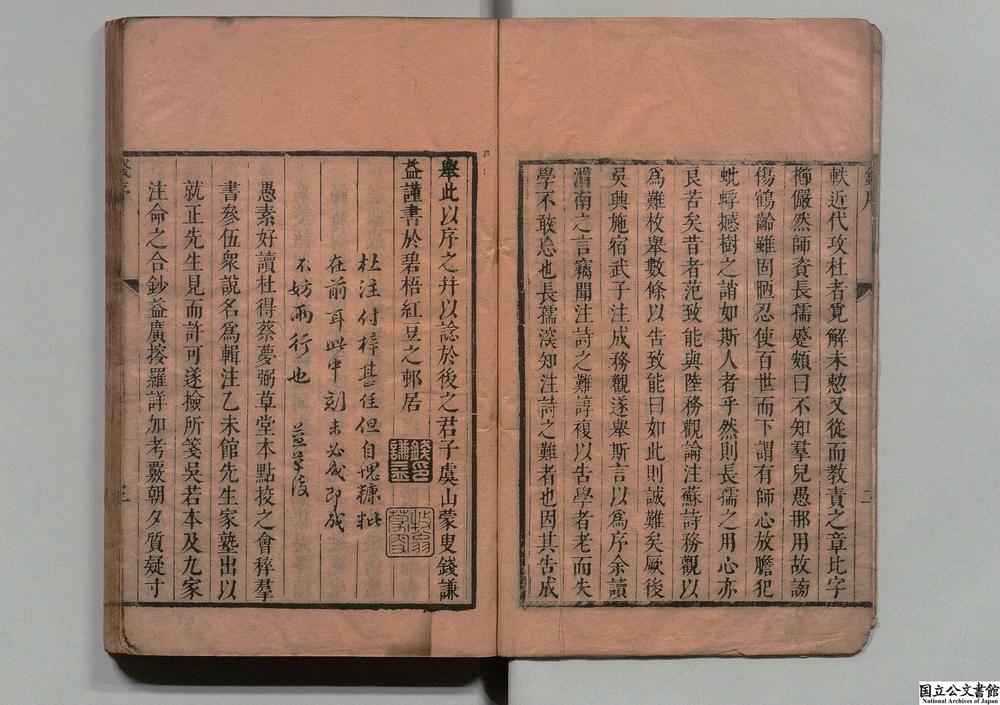 錢序
二
軼近代攻杜者覔解未慗又從而教責之章比字
櫛儼然師資長孺蹙頞曰不知羣兒愚那用故謗
傷鶴齡雖固陋忍使百世而下謂有師心放膽犯
蚍蜉撼樹之誚如斯人者乎然則長孺之用心亦
良苦矣昔者范致能與陸務觀論注蘇詩務觀以
為難枚舉數條以告致能曰如此則誠難矣厥後
吳興施宿武子注成務觀遂舉斯言以為序余讀
渭南之言竊聞注詩之難諄複以告學者老而失
學不敢忘也長孺深知注詩之難者也因其告成
舉此以序之幷以諗於後之君子虞山蒙叟錢謙
益謹書於碧梧紅豆之邨居
錢印謙益
牧翁蒙叟
杜注付梓甚佳但自愧糠粃
在前耳此中刻未必成即成
不妨兩行也 益草復
愚素好讀杜得蔡夢弼草堂本點挍之會稡羣
書參伍衆說名為輯注乙未館先生家塾出以
就正先生見而許可遂撿所箋吳若本及九家
注命之合鈔益廣搜羅詳加考覈朝夕質疑寸
三
国立公文書館
National Archives of Japan